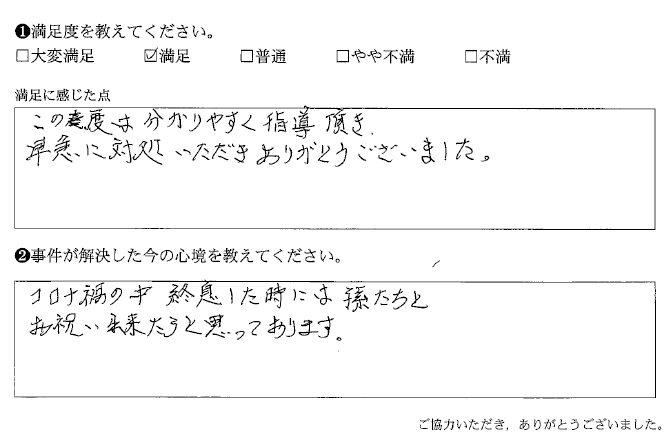 ❶満足度を教えてください。
□大変満足 ☑満足 □普通 □やや不満 □不満
満足に感じた点
この度は 分かりやすく 指導 頂き
早急に対処 いただき ありがとうございました。
❷事件が解決した今の心境を教えてください。
コロナ禍の中 終息した時には 孫たちと
お祝い出来たらと思っております。
ご協力いただき，ありがとうございました。